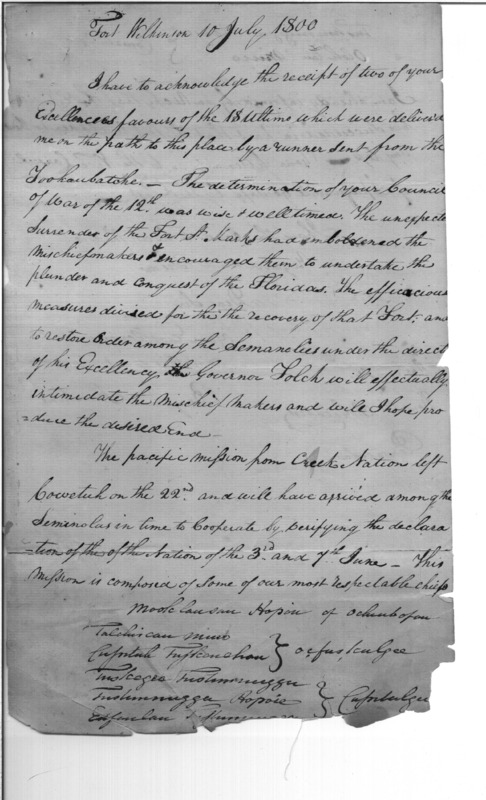 Fort Wilkinson 10 July, 1800
I have to acknowledge the receipt of two of your
Excellences favours of the 18 Ultimo which were delivere
me on the path to this place by a runner sent from the
Tookaubatche. — The determination of your Council
of War of the 12th. was wise & well timed. The unexpecte
Surrender of the Fort St. Marks had emboldened the
Mischiefmakers & encouraged them to undertake the
plunder and conquest of the Floridas. The efficacious
measures divised for the the recovery of that Fort; and
to restore order among the Semanolies under the direct
of his Excellency the Governor Folch will effectually
intimidate the Mischief Makers and will I hope pro
=duce the desired End —
The pacific mission from Creek Nation left
Cowetuh on the 22d. and will have arrived among the
Semanolas in time to Cooperate by verifying the declara
=tion of the of the Nation of the 3d. and 7th June — This
Mission is composed of some of our most respectable chiefs
Hopoie of
mico
} ofuskulgee
Tuskegee Tustunnuggu
Tustunnuggu Hopoie } Cussetulgee